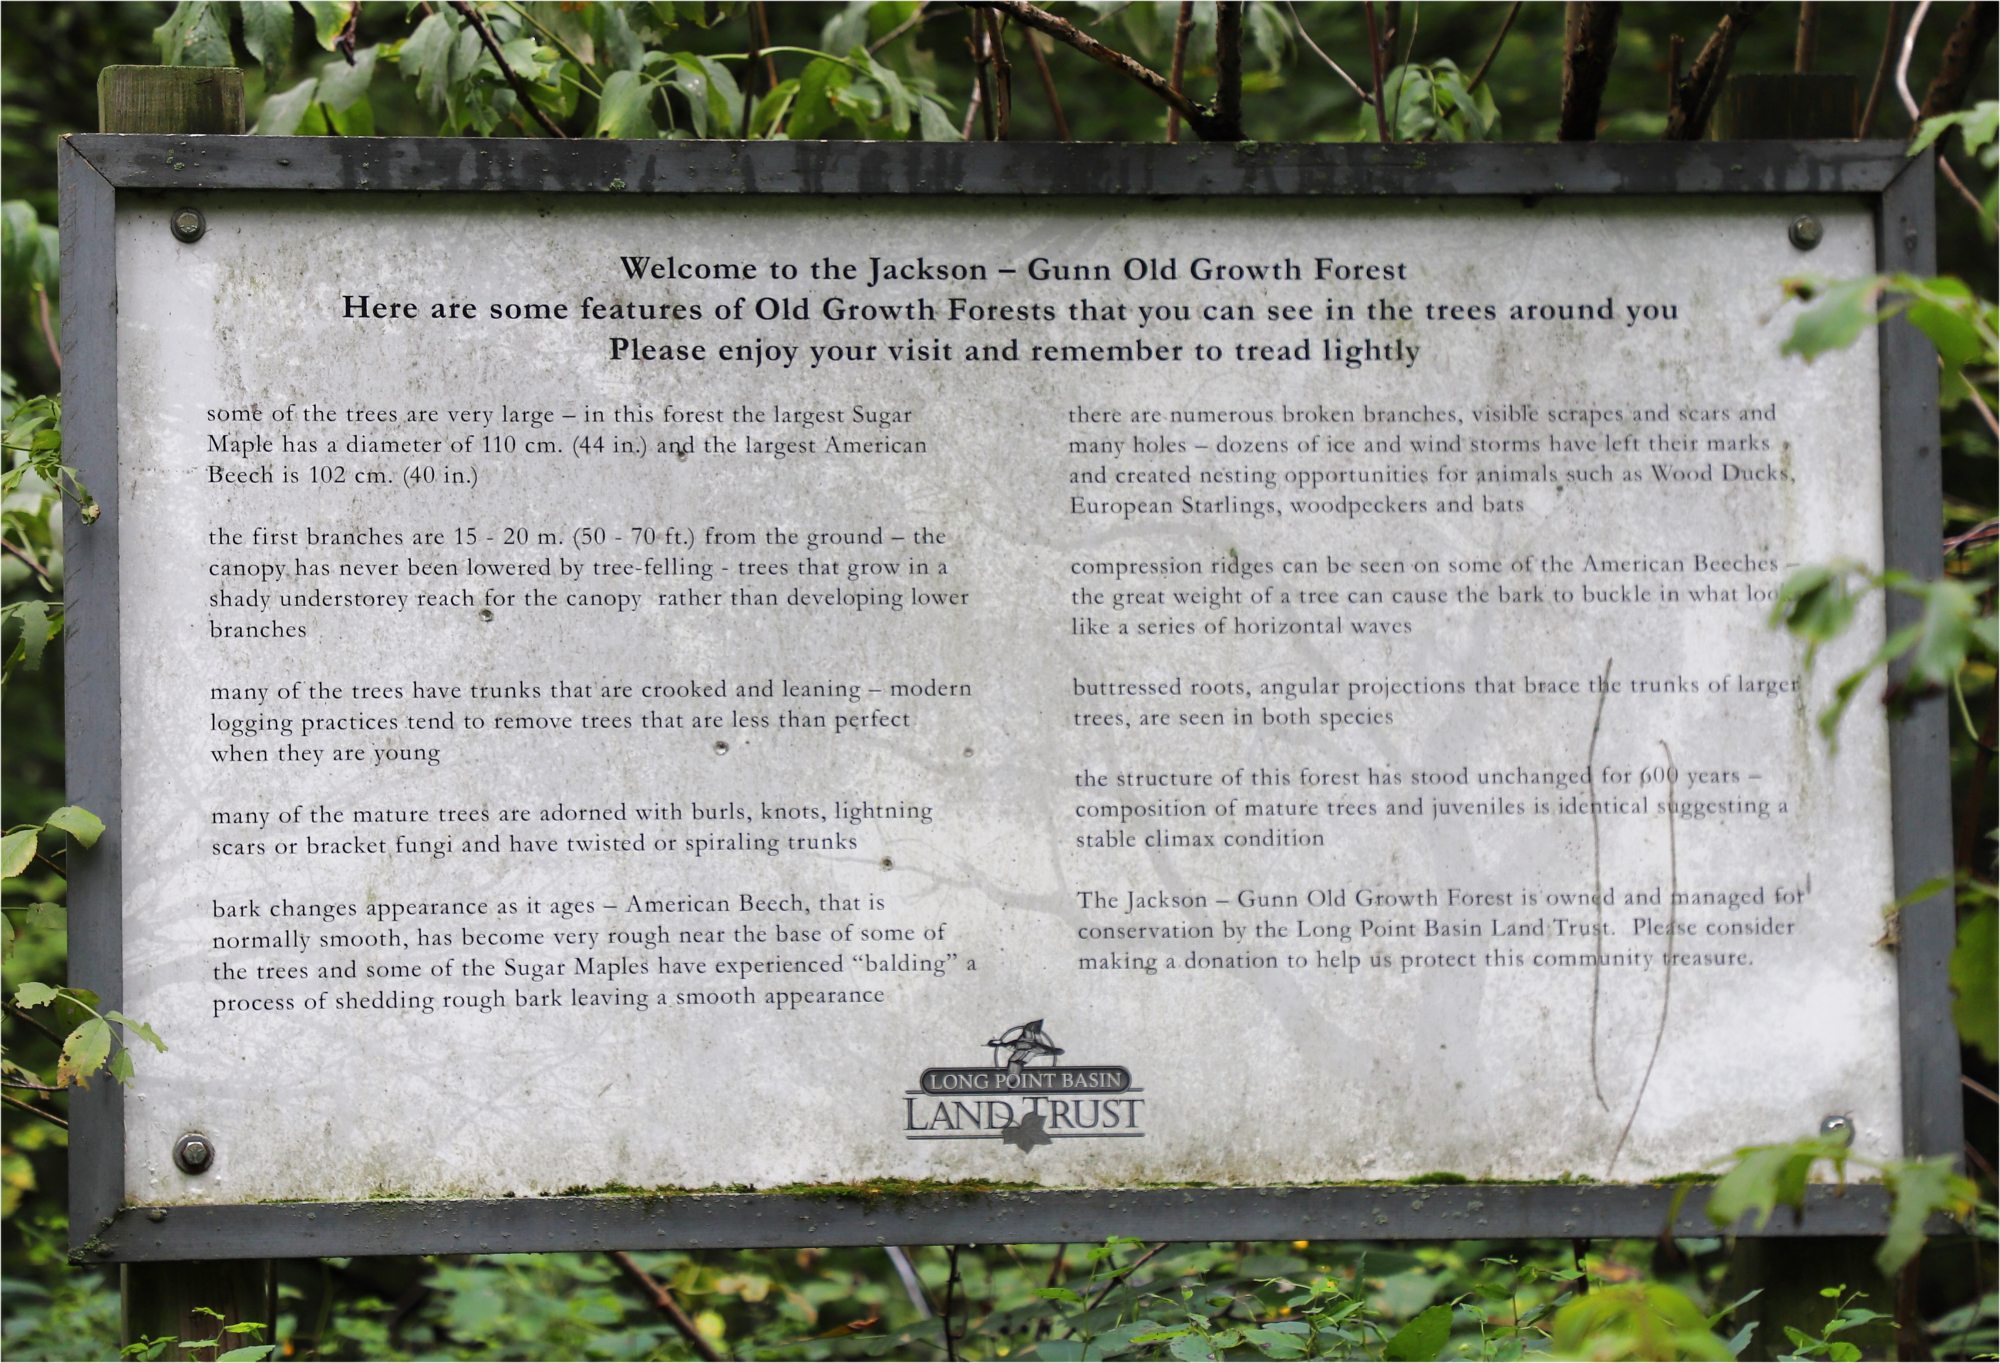 Welcome to the Jackson – Gunn Old Growth Forest
Here are some features of Old Growth Forests that you can see in the trees around you
Please enjoy your visit and remember to tread lightly
some of the trees are very large – in this forest the largest Sugar
Maple has a diameter of 110 cm. (44 in.) and the largest American
Beech is 102 cm. (40 in.)
the first branches are 15 - 20 m. (50 - 70 ft.) from the ground – the
canopy has never been lowered by tree-felling - trees that grow in a
shady understorey reach for the canopy rather than developing lower
branches
many of the trees have trunks that are crooked and leaning – modern
logging practices tend to remove trees that are less than perfect
when they are young
many of the mature trees are adorned with burls, knots, lightning
scars or bracket fungi and have twisted or spiraling trunks
bark changes appearance as it ages – American Beech, that is
normally smooth, has become very rough near the base of some of
the trees and some of the Sugar Maples have experienced “balding” a
process of shedding rough bark leaving a smooth appearance
there are numerous broken branches, visible scrapes and scars and
many holes – dozens of ice and wind storms have left their marks
and created nesting opportunities for animals such as Wood Ducks,
European Starlings, woodpeckers and bats
compression ridges can be seen on some of the American Beeches –
the great weight of a tree can cause the bark to buckle in what
like a series of horizontal waves
buttressed roots, angular projections that brace the trunks of larger
trees, are seen in both species
the structure of this forest has stood unchanged for 600 years –
composition of mature trees and juveniles is identical suggesting a
stable climax condition
The Jackson – Gunn Old Growth Forest is owned and managed for
conservation by the Long Point Basin Land Trust. Please consider
making a donation to help us protect this community treasure.
LONG POINT BASIN
LAND TRUST